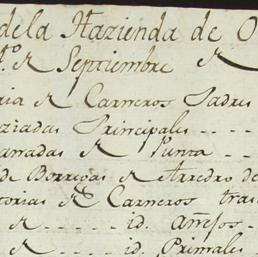 de la Hazienda de O
4.º de Septiembre de
ria de Carneros Padres
aziadas Principales
arradas de Punta
de Borregas de Arredro de
torias de Carneros tras
de id. Añejos
de id. Primales